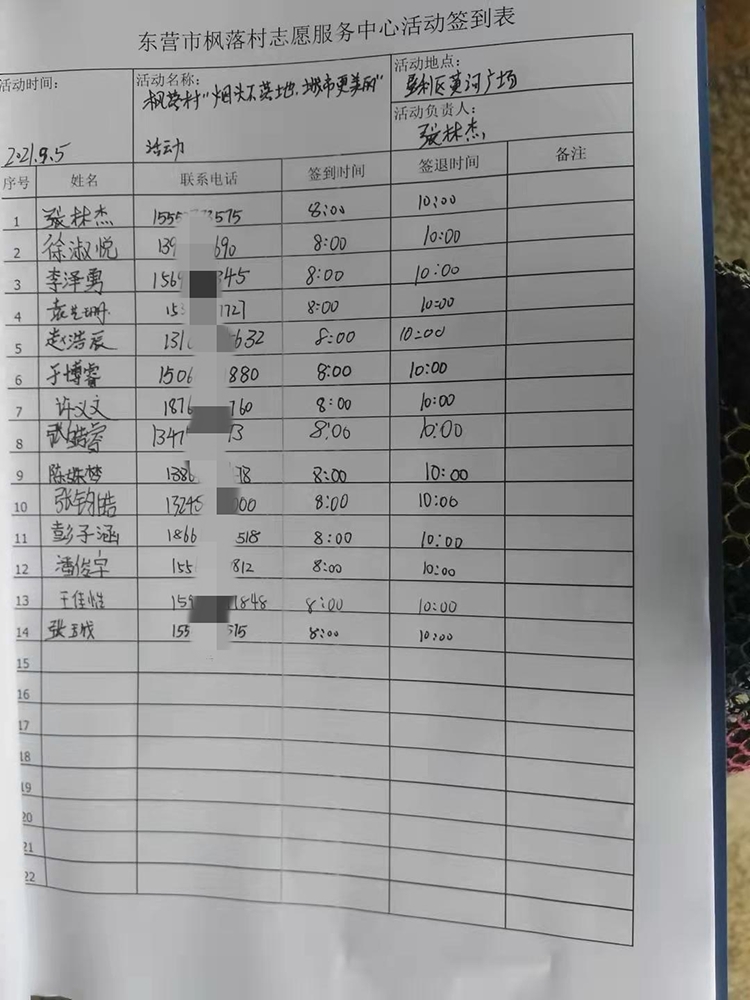 东营市枫落村志愿服务中心活动签到表
活动时间: 2021.9.5
活动名称: 枫落村“烟头不落地,城市更美丽”
活动
活动地点: 垦利区黄河广场
活动负责人: 张林杰
序号 姓名 联系电话 签到时间 签退时间 备注
1 张林杰 155 3575 8:00 10:00
2 徐淑悦 139 690 8:00 10:00
3 李泽勇 156 345 8:00 10:00
4 15 1727 8:00 10:00
5 赵浩辰 131 632 8:00 10:00
6 于博睿 1506 880 8:00 10:00
7 许义文 187 760 8:00 10:00
8 1347 13 8:00 10:00
9 陈姝梦 1386 78 8:00 10:00
10 张钧皓 1324 000 8:00 10:00
11 彭子涵 1866 518 8:00 10:00
12 潘俊宇 155 812 8:00 10:00
13 王佳怡 159 1848 8:00 10:00
14 张玉成 155 515 8:00 10:00
15
16
17
18
19
20
21
22